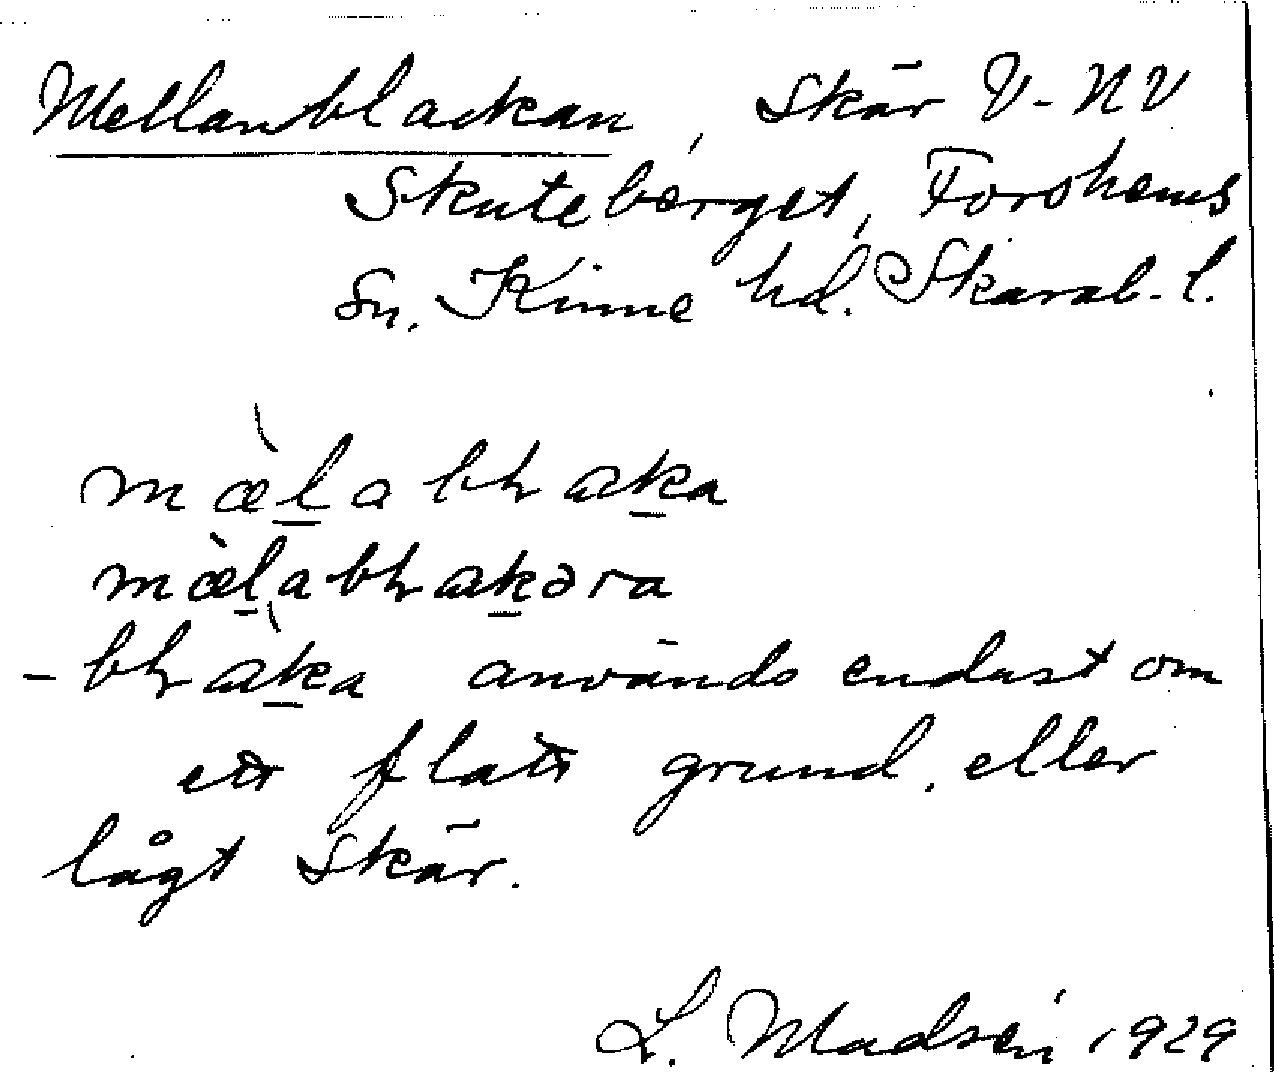 Mellanblackan, Skär V-NV
Skuteberget, Forshems
sn. Kinne hd. Skarab. l.
mæ̀l̲abɫak̲a
mæ̀l̲abɫak̲əra
-bɫàk̲a används endast om
ett flatt grund. eller
lågt skär.
L. Madsén 1929